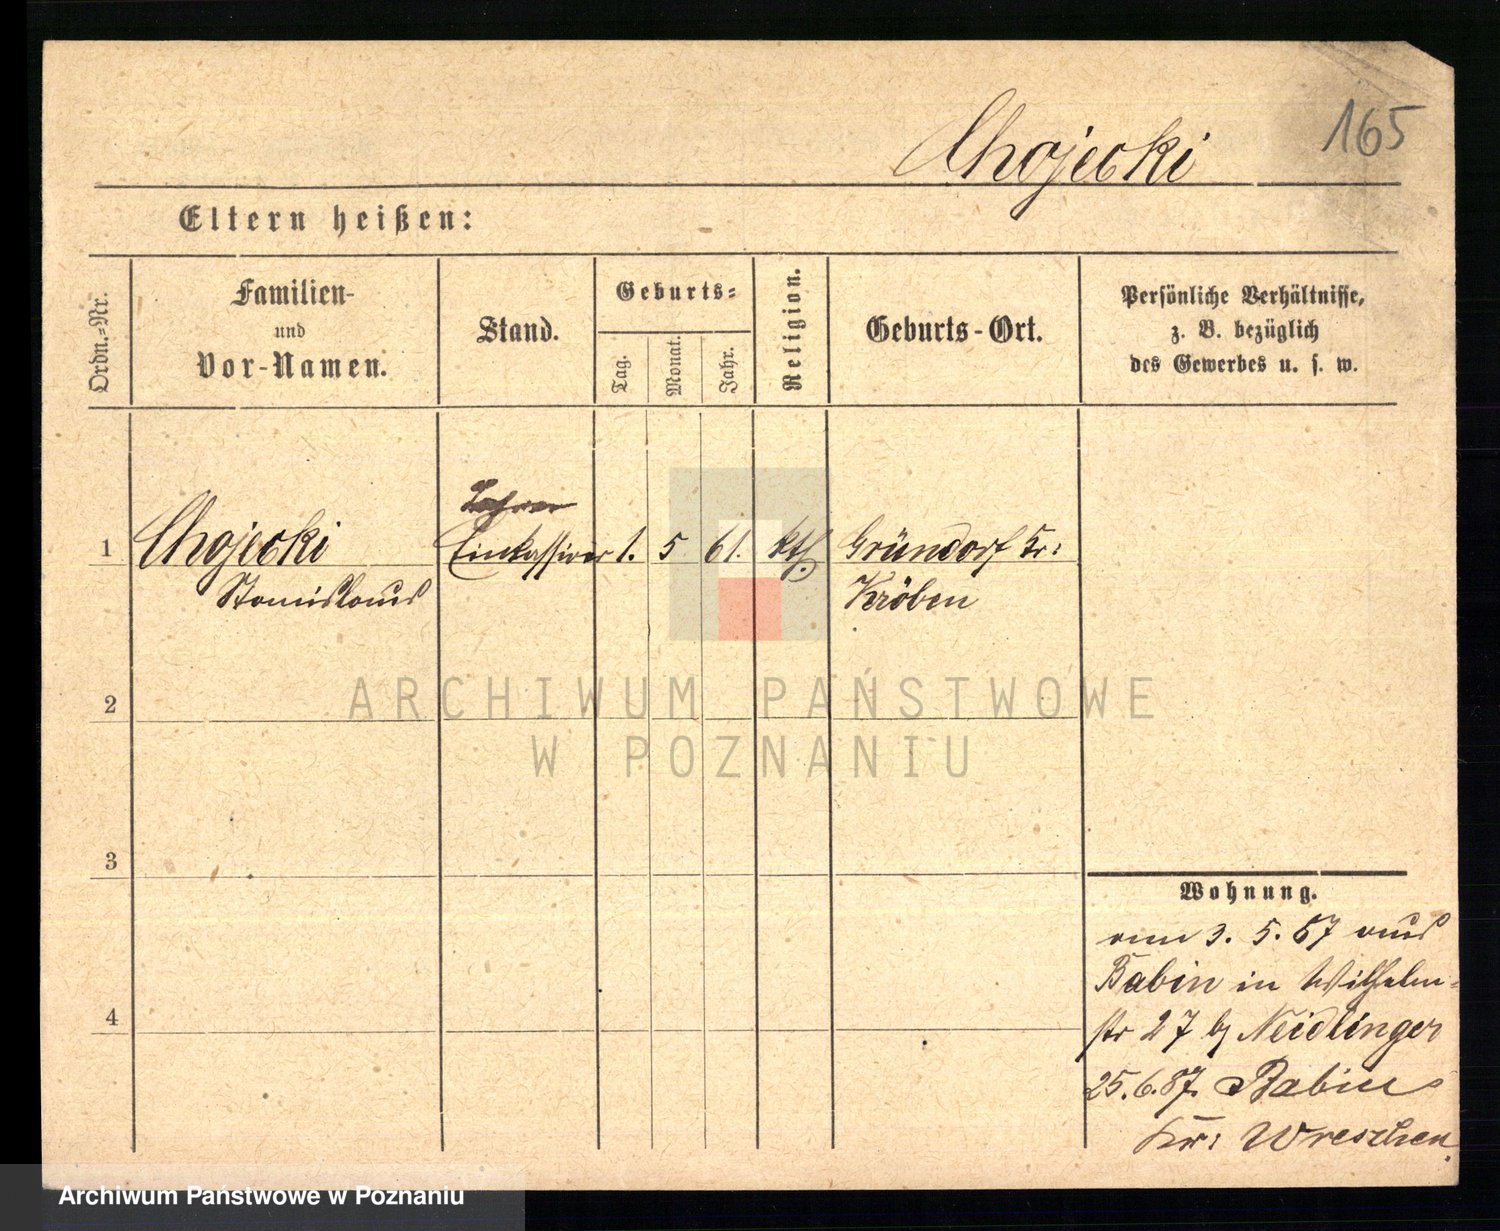 165
Chojecki
Eltern heißen:
Ordn.-Nr.
Familien-
und
Vor-Namen.
Stand.
Geburts-
Tag.
Monat.
Jahr.
Religion.
Geburts-Ort.
Persönliche Verhältnisse,
z. B. bezüglich
des Gewerbes u. s. w.
Lehrer
1 Chojecki Einkassirer 1. 5 61. kth. Gründorf Kr:
Stanislaus Kröben
2
3
4
ARCHIWUM PAŃSTWOWE
W POZNANIU
Wohnung.
3. 5. 87 aus
Babin in Wilhelm-
str 27 b/ Neidlinger
25.6.87. Babin
Kr: Wreschen
Archiwum Państwowe w Poznaniu